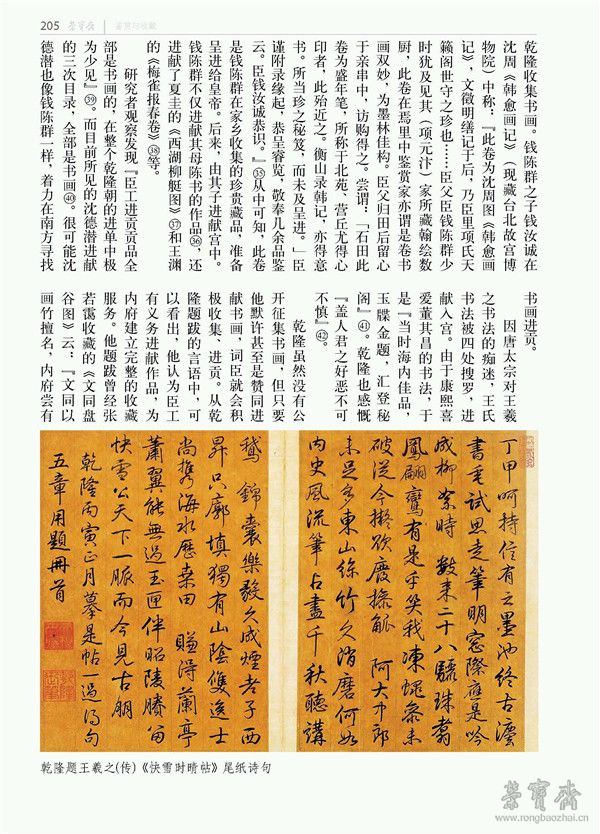 205 荣宝斋 鉴赏与收藏
乾隆收集书画。钱陈群之子钱汝诚在
沈周《韩愈画记》(现藏台北故宫博
物院)中称:『此卷为沈周图《韩愈画
记》,文徵明缮记于后,乃臣里项氏天
籁阁世守之珍也……臣父臣钱陈群少
时犹及见其(项元汴)家所藏翰绘数
厨,此卷在焉里中鉴赏家亦谓是卷书
画双妙,为墨林佳构。臣父归田后留心
于亲串中,访购得之。尝谓:『石田此
卷为盛年笔,所称于北苑、营丘尤得心
印者,此殆近之。衡山录韩记,亦得意
书。所当珍之秘笈,而未及呈进。』臣
谨附录缘起,恭呈睿览,敬奉几余品鉴
云。臣钱汝诚恭识。』㉟从中可知,此卷
是钱陈群在家乡收集的珍贵藏品,准备
呈进给皇帝。后来,由其子进献宫中。
钱陈群不仅进献其母陈书的作品㊱,还
进献了夏圭的《西湖柳艇图》㊲和王渊
的《梅雀报春卷》㊳等。
研究者观察发现『臣工进贡贡品全
部是书画的,在整个乾隆朝的进单中极
为少见』㊴。而目前所见的沈德潜进献
的三次目录,全部是书画㊵。很可能沈
德潜也像钱陈群一样,着力在南方寻找
书画进贡。
因唐太宗对王羲
之书法的痴迷,王氏
书法被四处搜罗,进
献入宫。由于康熙喜
爱董其昌的书法,于
是『当时海内佳品,
玉牒金题,汇登秘
阁』㊶。乾隆也感慨
『盖人君之好恶不可
不慎』㊷。
乾隆虽然没有公
开征集书画,但只要
他默许甚至是赞同进
献书画,词臣就会积
极收集、进贡。从乾
隆题跋的言语中,可
以看出,他认为臣工
有义务进献作品,为
内府建立完整的收藏
服务。他题跋曾经张
若霭收藏的《文同盘
谷图》云:『文同以
画竹擅名,内府尝有
丁甲呵持信有之墨池終古瀋
書毫試思走筆明窗際應是吟
成柳絮時 數來二十八驪珠翥
鳳翩鸞有是乎笑我凍蠅參未
破從今擬欲廢操觚 阿大中郎
未足多東山絲竹久消磨何如
內史風流筆占盡千秋聽講
鵝 錦囊樂毅久成煙老子西
昇只廓填獨有山陰雙逸士
尚攜海水歷桑田 賺得蘭亭
蕭翼能無過玉匣伴昭陵賸留
快雪公天下一脈而今見古朋
乾隆丙寅正月摹是帖一過得句
五章用題冊首
乾隆题王羲之(传)《快雪时晴帖》尾纸诗句
荣宝斋
www.rongbaozhai.cn